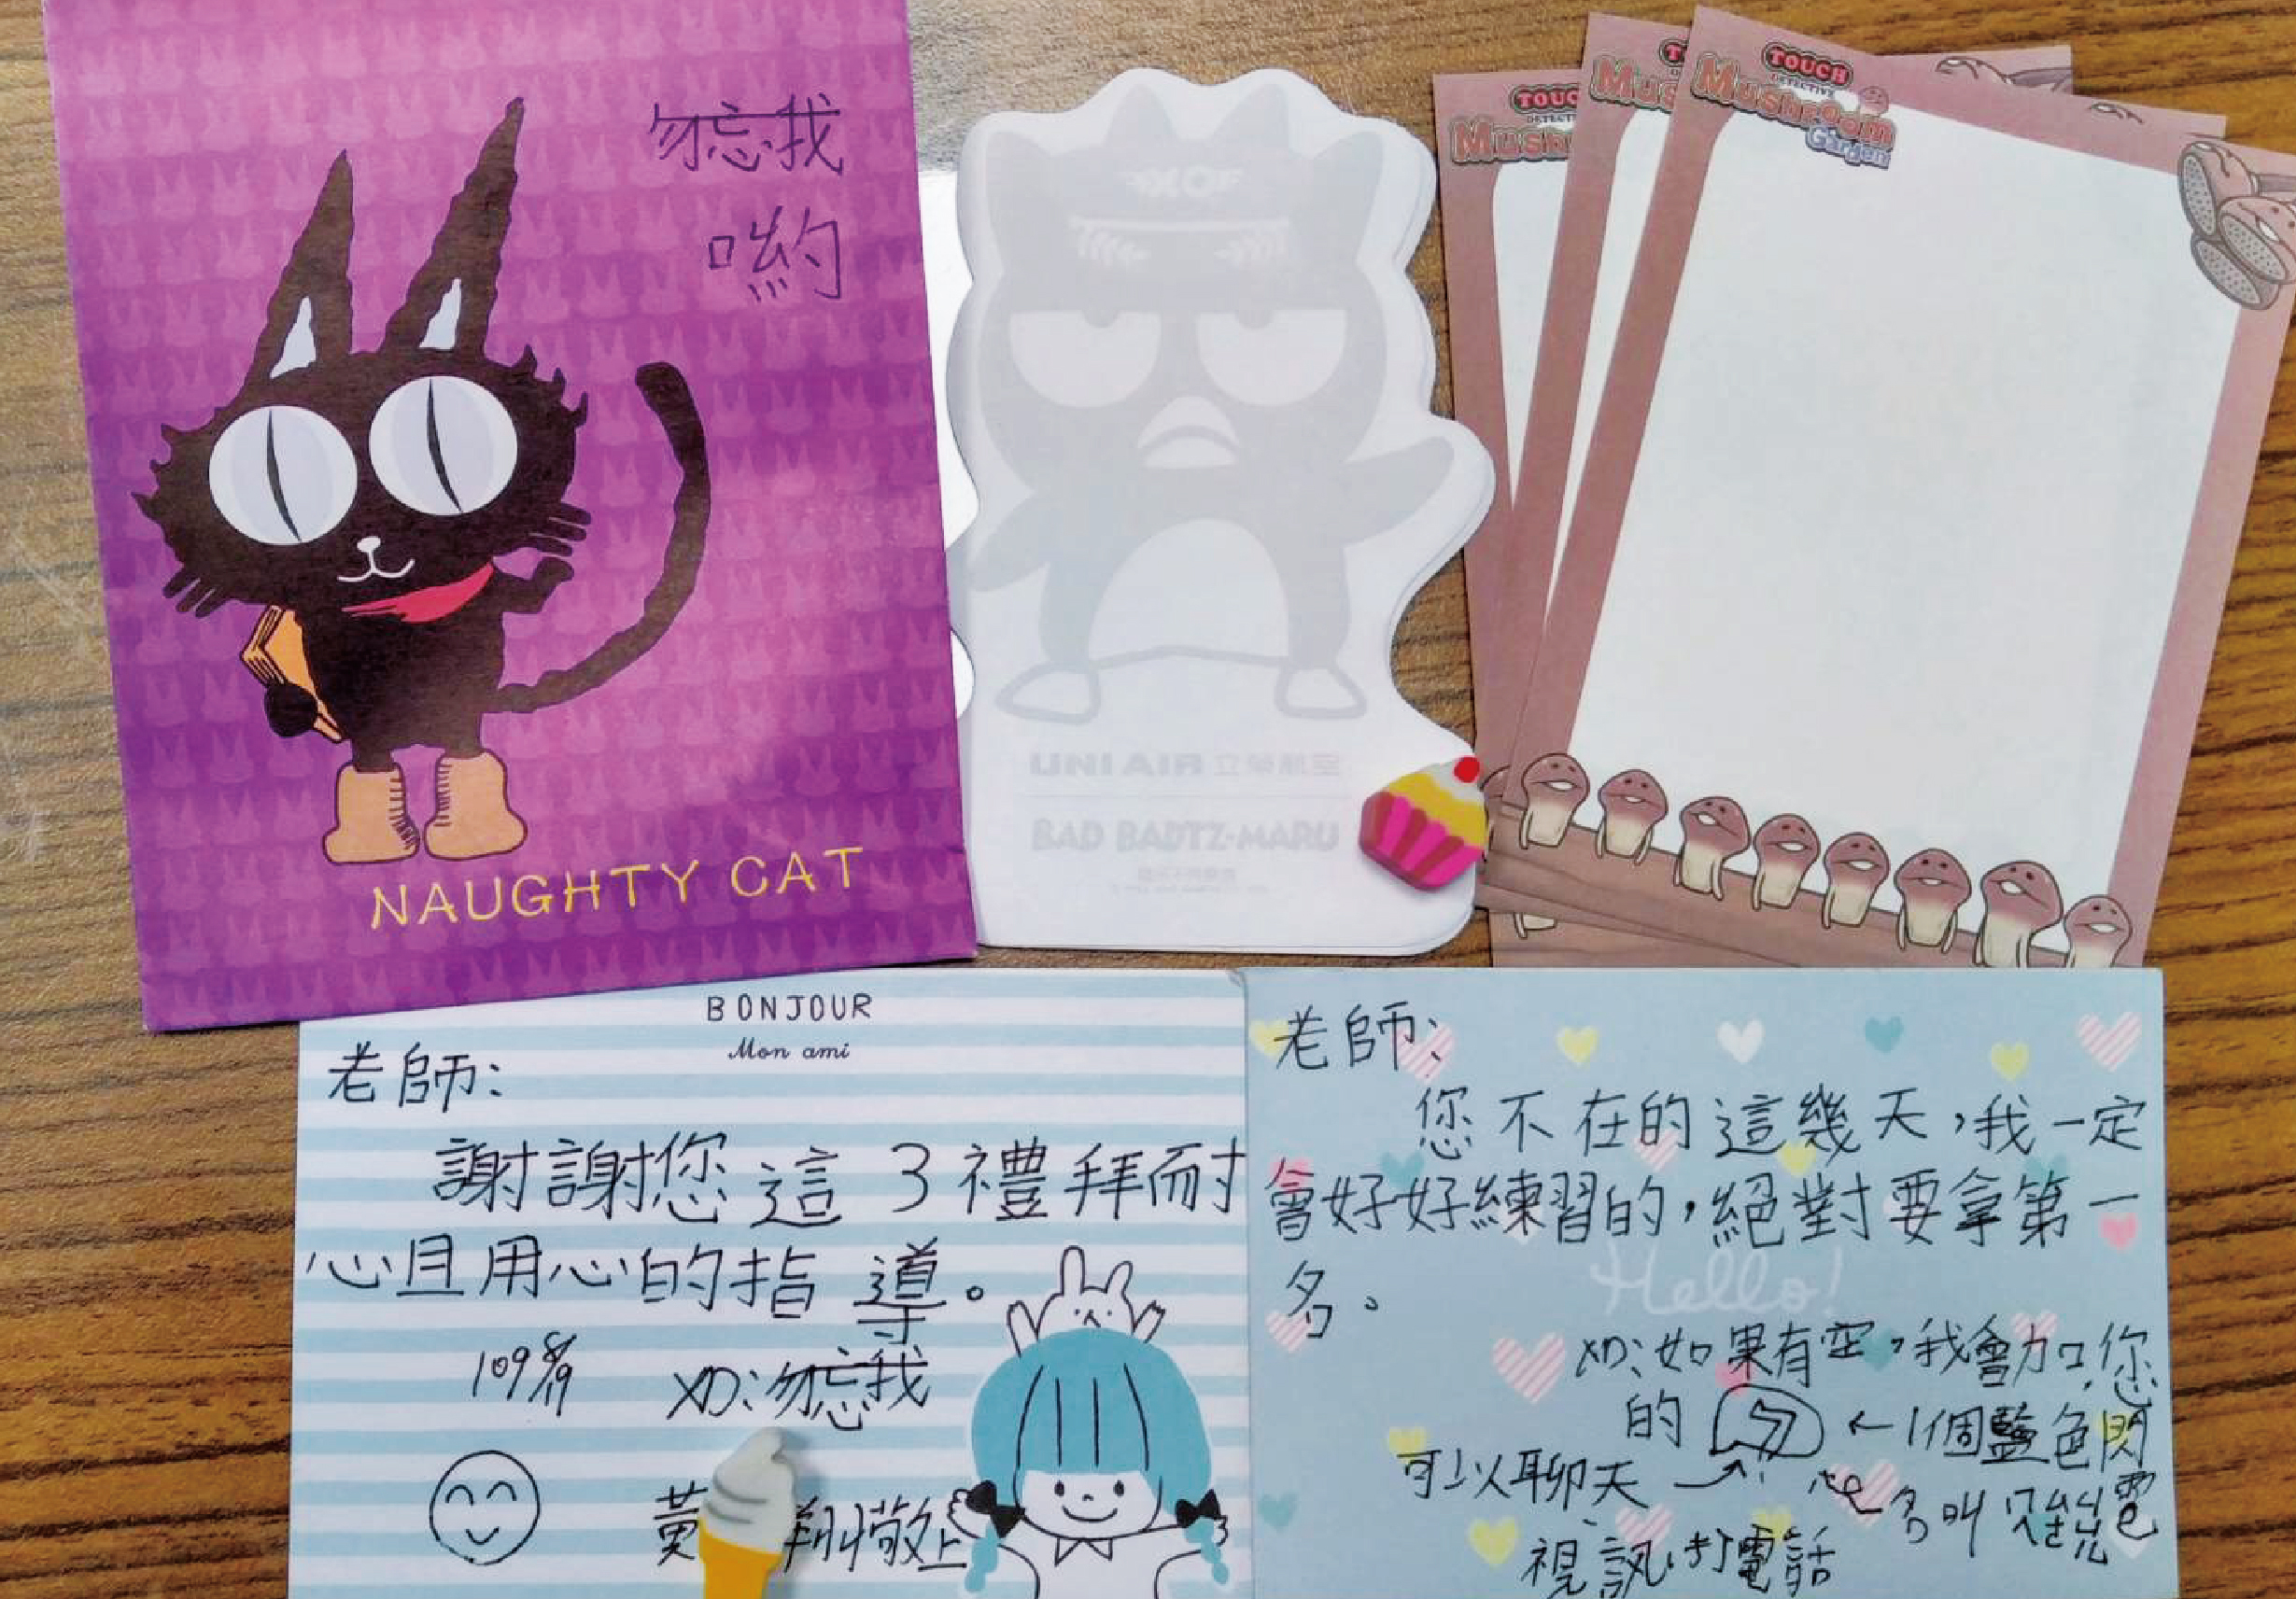 勿忘我
喲
NAUGHTY CAT
UNI AIR 立榮航空
BAD BADTZ-MARU
TOUCH
DETECTIVE
Mushroom
Garden
BONJOUR
Mon ami
老師：
謝謝您這3禮拜耐
心且用心的指導。
109 8/19
XD：勿忘我
黃 翔敬上
老師：
您不在的這幾天，我一定
會好好練習的，絕對要拿第一
名。
Hello!
XD：如果有空，我會加您
的 ← 1個藍色閃
電
可以聊天
視訊、打電話
名叫